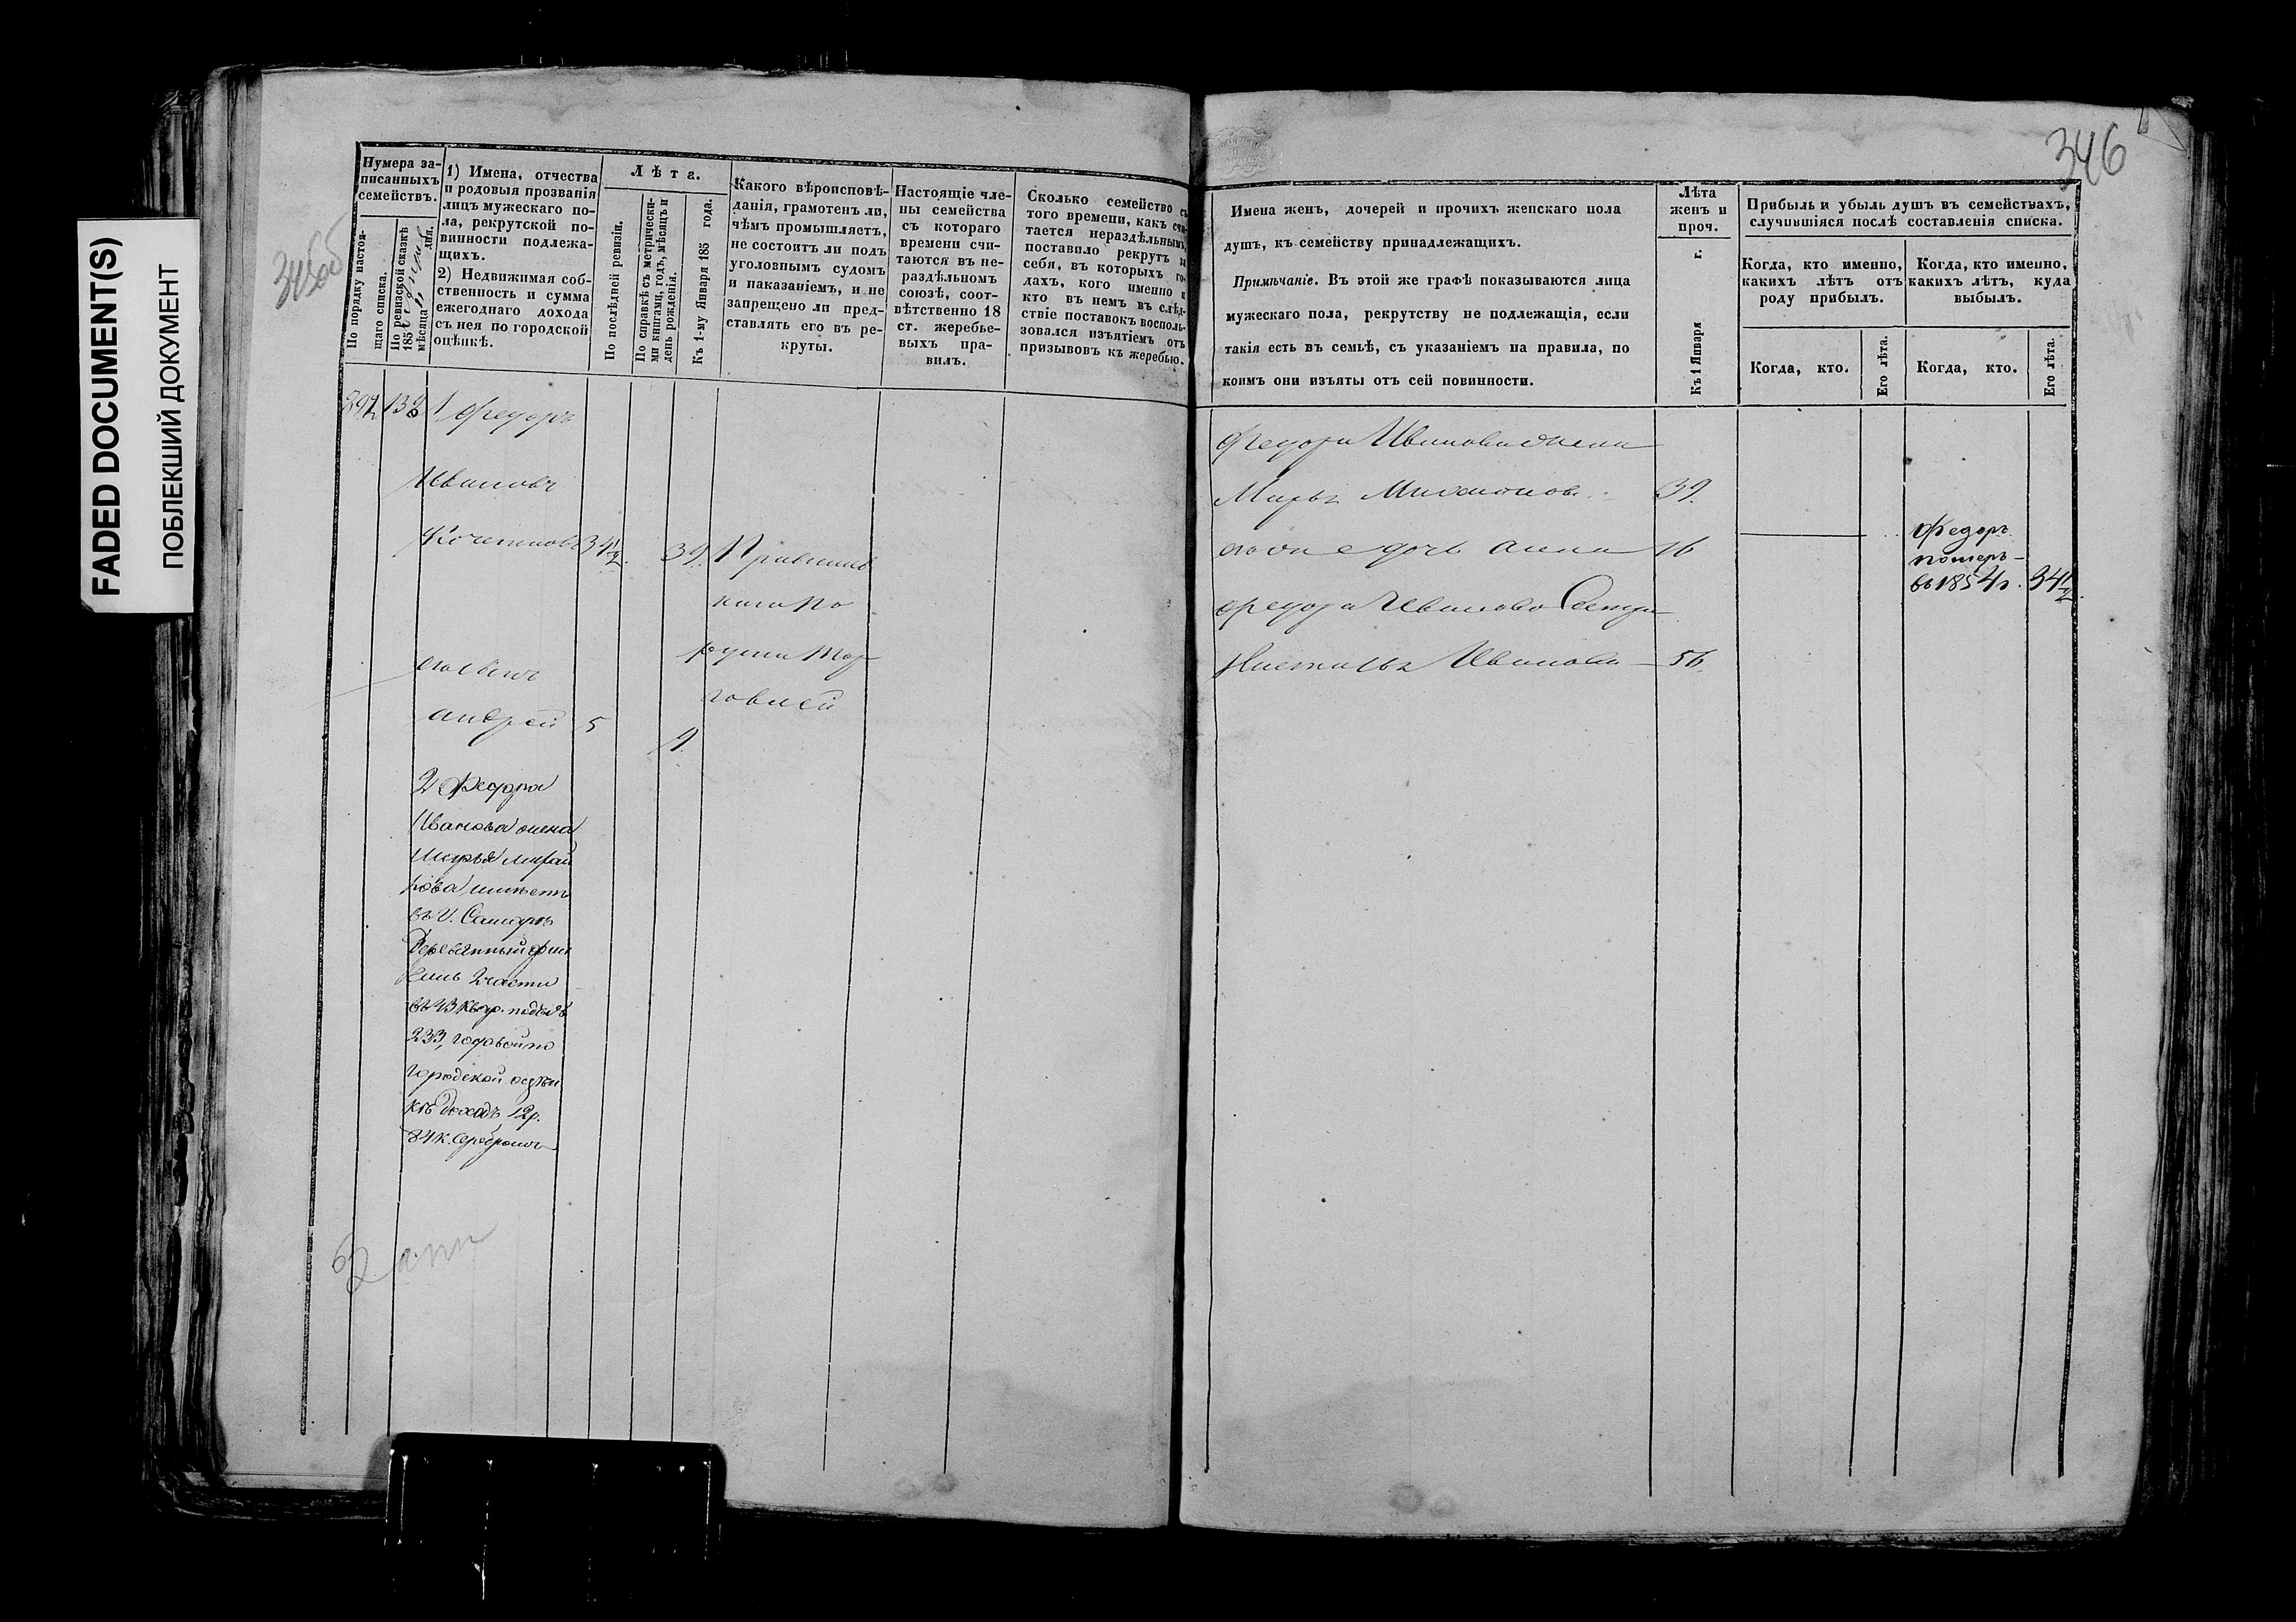 FADED DOCUMENT(S)
ПОБЛЕКШИЙ ДОКУМЕНТ
Нумера за-
писанныхъ
семействъ.
По порядку настоя-
щаго списка.
По ревизской сказкѣ
185
мѣсяца
дня.
1) Имена, отчества
и родовыя прозванія
лицъ мужескаго по-
ла, рекрутской по-
винности подлежа-
щихъ.
2) Недвижимая соб-
ственность и сумма
ежегоднаго дохода
съ нея по городской
оцѣнкѣ.
Лѣта.
По послѣдней ревизіи.
По справкѣ съ метрически-
ми книгами, годъ, мѣсяцъ и
день рожденія.
Къ 1-му Января 185 года.
Какого вѣроисповѣ-
данія, грамотенъ ли,
чѣмъ промышляетъ,
не состоитъ ли подъ
уголовнымъ судомъ
и наказаніемъ, и не
запрещено ли пред-
ставлять его въ ре-
круты.
Настоящіе чле-
ны семейства
съ котораго
времени счи-
таются въ не-
раздѣльномъ
союзѣ, соот-
вѣтственно 18
ст. жеребье-
выхъ пра-
вилъ.
Сколько семейство съ
того времени, какъ счи-
тается нераздѣльнымъ,
поставило рекрутъ за
себя, въ которыхъ го-
дахъ, кого именно и
кто въ немъ въ слѣд-
ствіе поставокъ восполь-
зовался изъятіемъ отъ
призывовъ къ жеребью.
1 Федоръ
Ивановъ
34½
39
Православ
наго
тор
говлей
его сынъ
андрей 5
9.
2 Федора
Иванова жена
Марья
имѣетъ
въ г. Самарѣ
Деревянный
2 части
въ 43 квар.
233, годовой по
городской оцѣн
кѣ доходъ 12 р.
84 к. серебромъ
346
Имена женъ, дочерей и прочихъ женскаго пола
душъ, къ семейству принадлежащихъ.
Примѣчаніе. Въ этой же графѣ показываются лица
мужескаго пола, рекрутству не подлежащія, если
такія есть въ семьѣ, съ указаніемъ на правила, по
коимъ они изъяты отъ сей повинности.
Лѣта
женъ и
проч.
Къ 1 Января г.
Прибыль и убыль душъ въ семействахъ,
случившіяся послѣ составленія списка.
Когда, кто именно,
какихъ лѣтъ отъ
роду прибылъ.
Когда, кто именно,
какихъ лѣтъ, куда
выбылъ.
Когда, кто.
Его лѣта.
Когда, кто.
Его лѣта.
Федора Иванова жена
Марья 39.
дочь анна 16
Федора Иванова Сестра
Настасья Иванова 56.
Федоръ
померъ
въ 1854 г. 34½